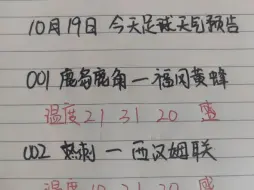 10月19日 今天足球天气预告
001 鹿岛鹿角一福冈黄蜂
温度21 31 20 盛
002 热刺 一 西汉姆联